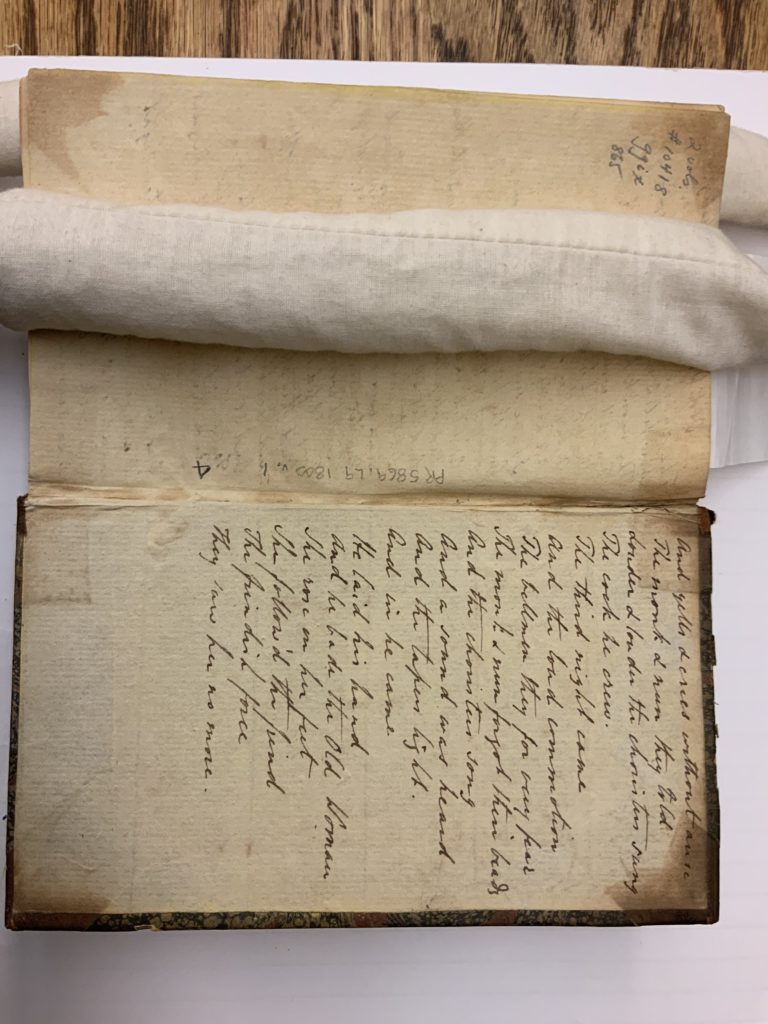 2 vols
# 10418
ggix
865
PR 5869.L9 1800 v.1
4
And yells & cries without arise
The monk & nun they told
Louder & louder the choristers sung
The cock he crew.
The third night came
And the loud commotion
The bellmen they for very fear
The monk & nun forgot their beads
And the choristers song
And a sound was heard
And the tapers light.
And in he came
He laid his hand
And he bade the Old Woman
She rose on her feet
She follow'd the fiend
The fiendish force
They saw her no more.